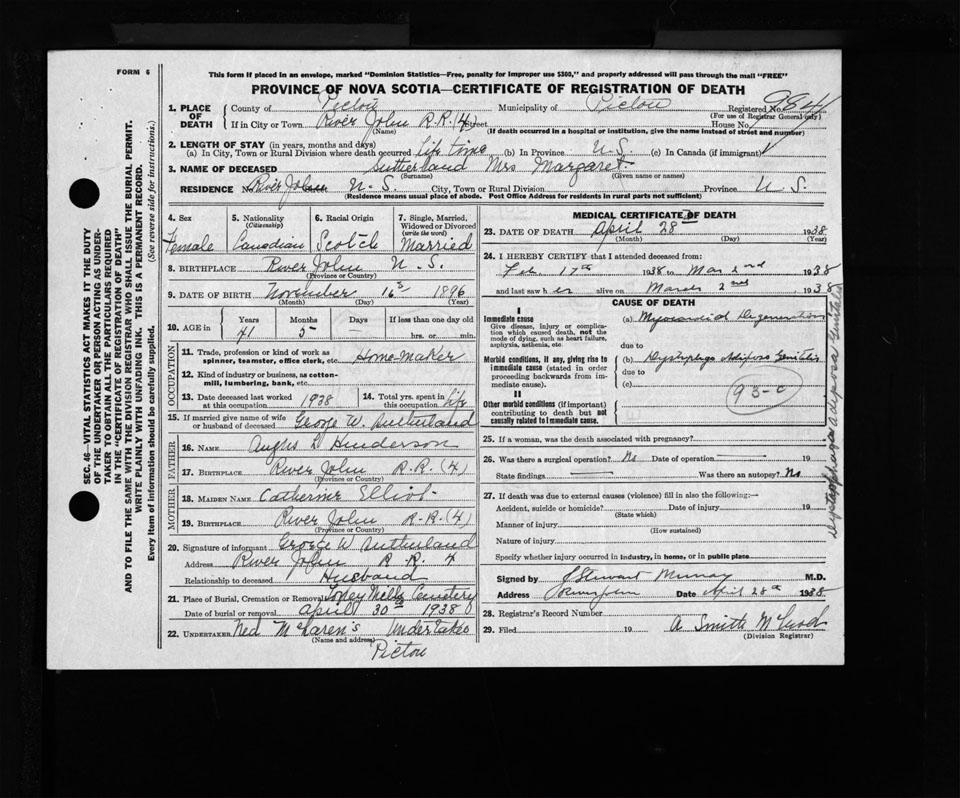 FORM 6
SEC. 46—VITAL STATISTICS ACT MAKES IT THE DUTY
OF THE UNDERTAKER OR PERSON ACTING AS UNDER-
TAKER TO OBTAIN ALL THE PARTICULARS REQUIRED
IN THE "CERTIFICATE OF REGISTRATION OF DEATH"
AND TO FILE THE SAME WITH THE DIVISION REGISTRAR WHO SHALL ISSUE THE BURIAL PERMIT.
WRITE PLAINLY WITH UNFADING INK. THIS IS A PERMANENT RECORD.
Every item of information should be carefully supplied. (See reverse side for instructions.)
This form if placed in an envelope, marked "Dominion Statistics—Free, penalty for improper use $300," and properly addressed will pass through the mail "FREE"
PROVINCE OF NOVA SCOTIA—CERTIFICATE OF REGISTRATION OF DEATH
1. PLACE OF DEATH County of Pictou Municipality of Pictou Registered No. 984
(For use of Registrar General only)
If in City or Town River John R.R. (4) Street House No.
(Name) (If death occurred in a hospital or institution, give the name instead of street and number)
2. LENGTH OF STAY (in years, months and days)
(a) In City, Town or Rural Division where death occurred Life time (b) In Province N.S. (c) In Canada (if immigrant)
3. NAME OF DECEASED Sutherland Mrs Margaret
(Surname) (Given name or names)
RESIDENCE No. River John N.S. City, Town or Rural Division Province N.S.
(Residence means usual place of abode. Post Office Address for residents in rural parts not sufficient)
4. Sex Female
5. Nationality (Citizenship) Canadian
6. Racial Origin Scotch
7. Single, Married, Widowed or Divorced (write the word) Married
8. BIRTHPLACE River John N.S.
(Province or Country)
9. DATE OF BIRTH November 16 1896
(Month) (Day) (Year)
10. AGE in Years 41 Months 5 Days — If less than one day old hrs. or min.
OCCUPATION
11. Trade, profession or kind of work as spinner, teamster, office clerk, etc. Home-maker
12. Kind of industry or business, as cotton-mill, lumbering, bank, etc.
13. Date deceased last worked at this occupation 1938
14. Total yrs. spent in this occupation Life
15. If married give name of wife or husband of deceased George W. Sutherland
FATHER
16. NAME Angus D Henderson
17. BIRTHPLACE River John R.R. (4)
(Province or Country)
MOTHER
18. MAIDEN NAME Catherine Elliot
19. BIRTHPLACE River John R.R. (4)
(Province or Country)
20. Signature of informant George W Sutherland
Address River John R.R. 4
Relationship to deceased Husband
21. Place of Burial, Cremation or Removal Cemetery
Date of burial or removal April 30 1938
22. UNDERTAKER Ned McLaren's Undertaker
(Name and address)
Pictou
MEDICAL CERTIFICATE OF DEATH
23. DATE OF DEATH April 28 1938
(Month) (Day) (Year)
24. I HEREBY CERTIFY that I attended deceased from:
Feb 17th 1938 to Mar 2nd 1938
and last saw her alive on March 2nd 1938
CAUSE OF DEATH
I
Immediate cause
Give disease, injury or complication which caused death, not the mode of dying, such as heart failure, asphyxia, asthenia, etc.
(a) Myocardial Degeneration
due to
Morbid conditions, if any, giving rise to immediate cause (stated in order proceeding backwards from immediate cause).
(b) Dystrophia Adiposo Genitalis
due to
(c)
II
Other morbid conditions (if important) contributing to death but not causally related to immediate cause.
93-c
25. If a woman, was the death associated with pregnancy?
26. Was there a surgical operation? No Date of operation
State findings Was there an autopsy? No
27. If death was due to external causes (violence) fill in also the following:—
Accident, suicide or homicide? Date of injury 19
(State which)
Manner of injury
(How sustained)
Nature of injury
Specify whether injury occurred in industry, in home, or in public place
Signed by J Stewart Murray M.D.
Address River John Date April 28th 1938
28. Registrar's Record Number
29. Filed 19 A Smith McLeod
(Division Registrar)